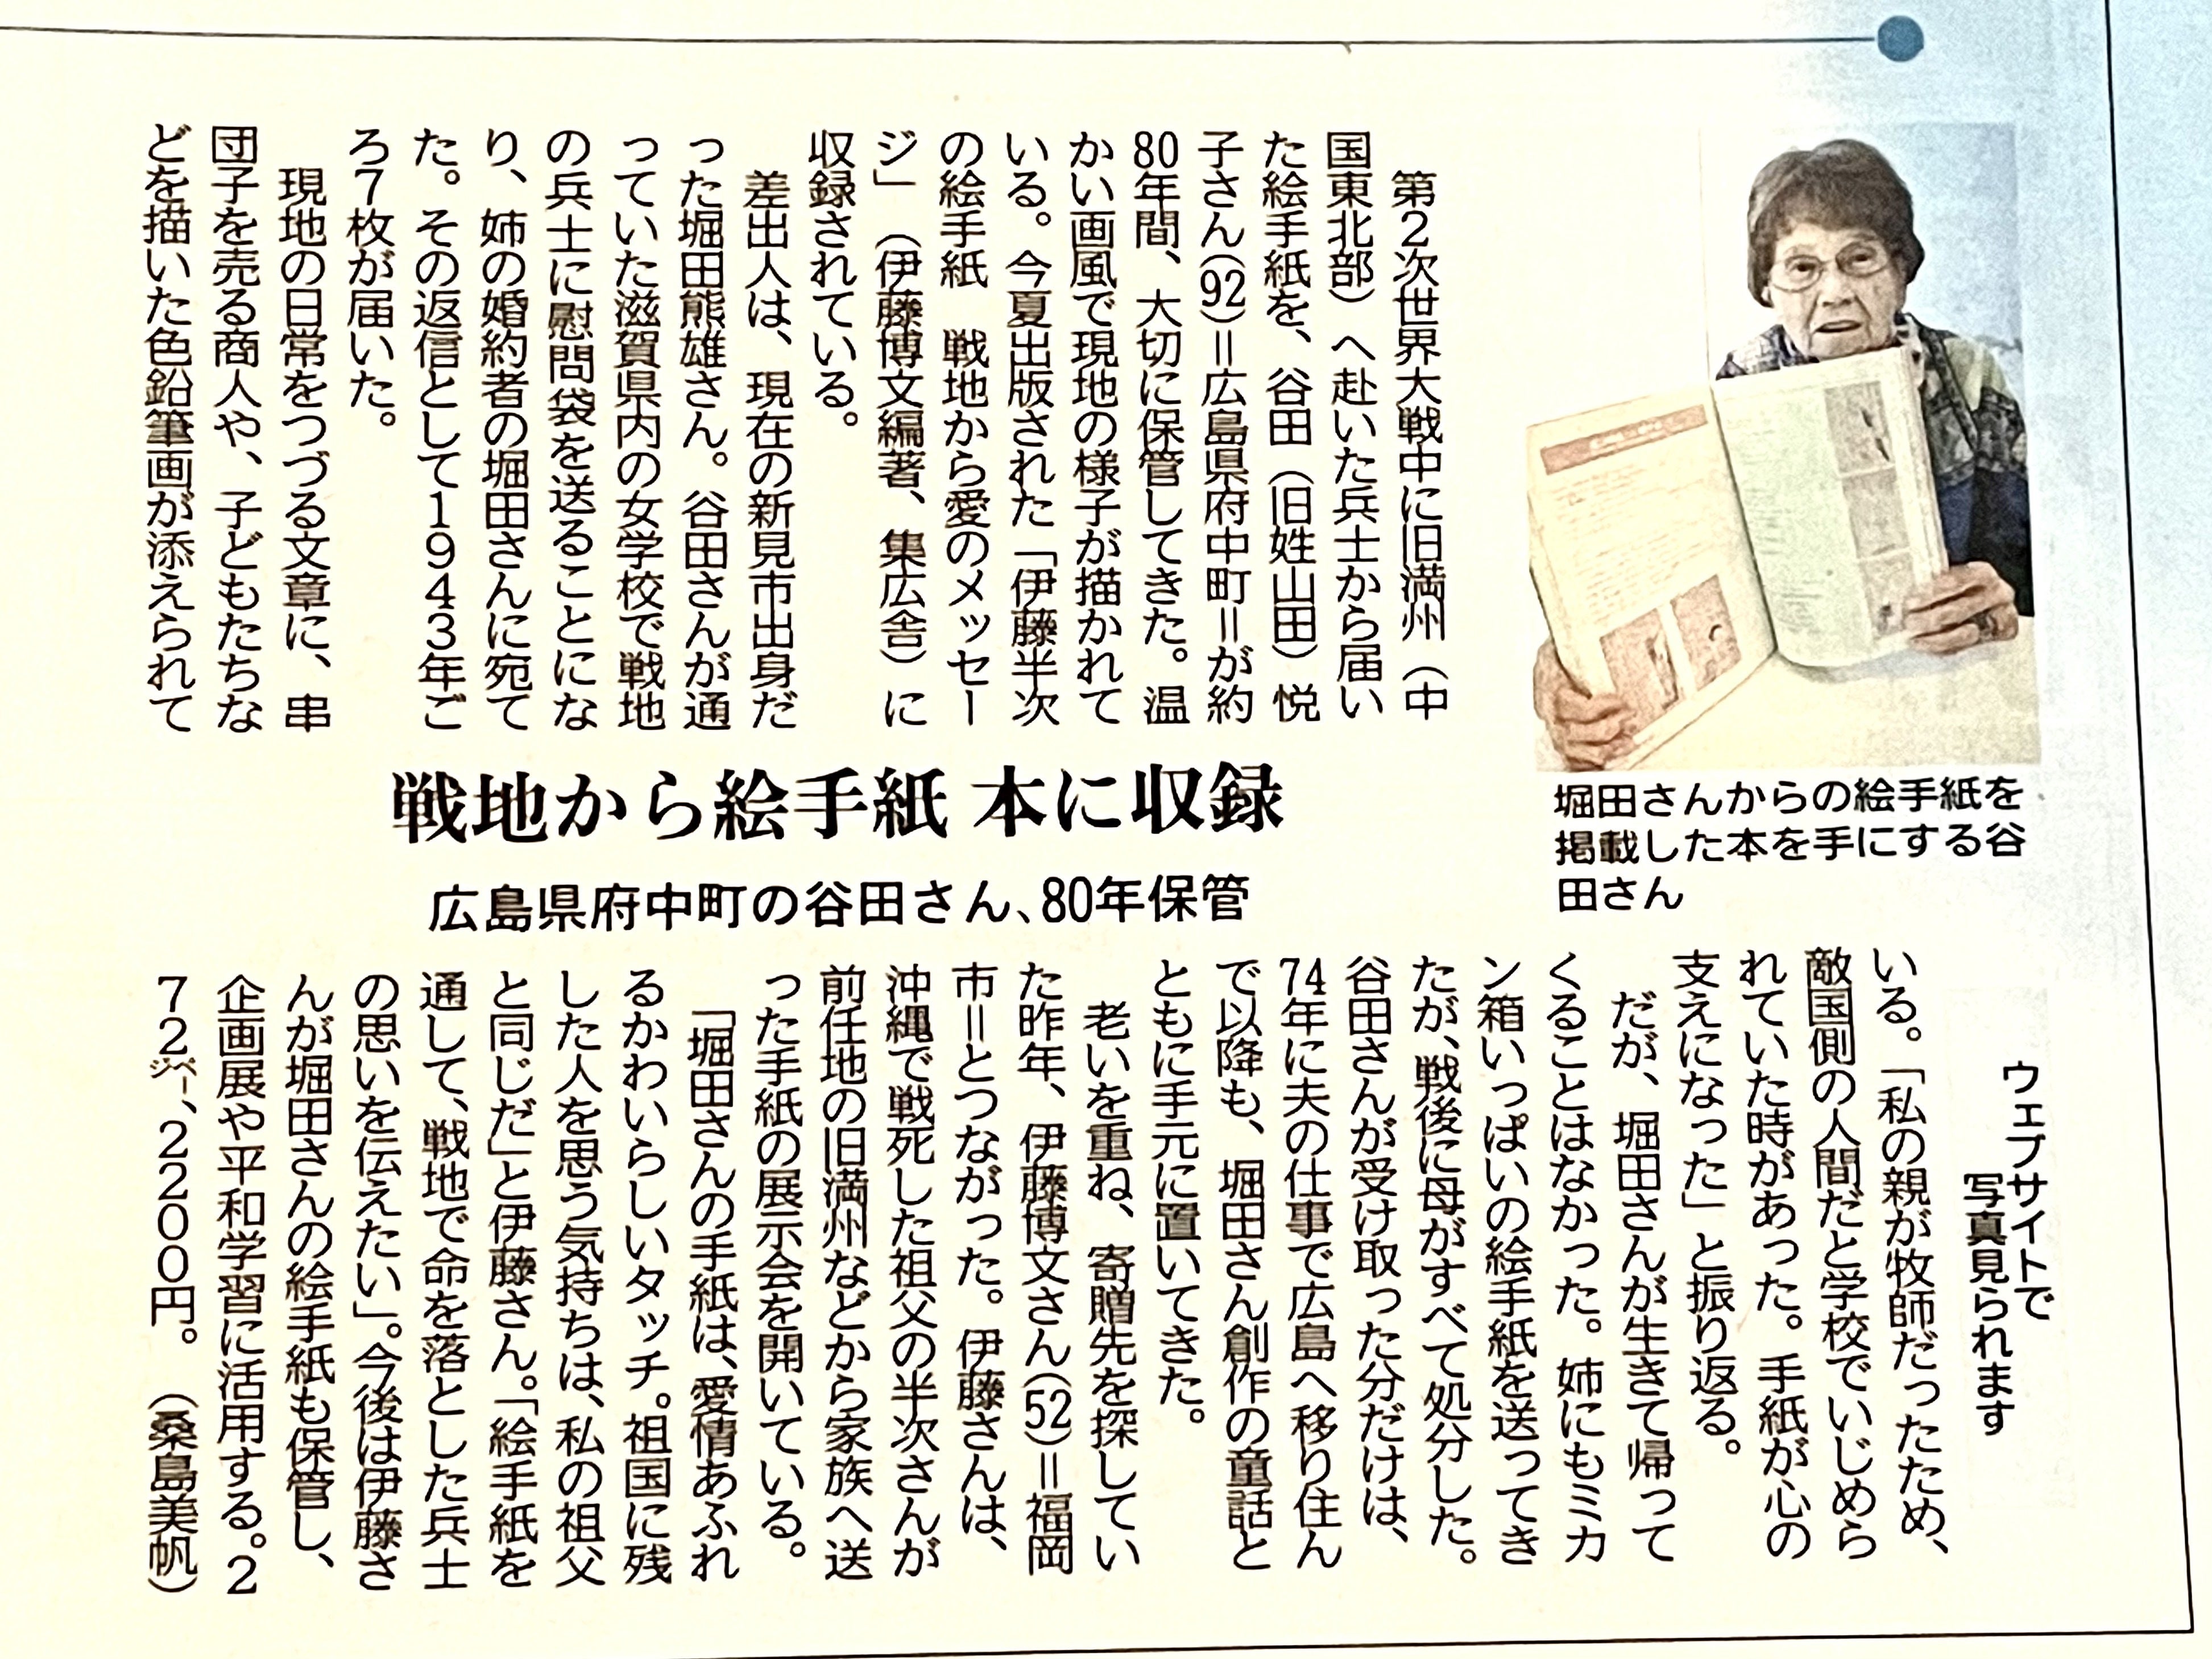 戦地から絵手紙 本に収録
広島県府中町の谷田さん、80年保管
堀田さんからの絵手紙を
掲載した本を手にする谷
田さん
第2次世界大戦中に旧満州（中
国東北部）へ赴いた兵士から届い
た絵手紙を、谷田（旧姓山田）悦
子さん(92)＝広島県府中町＝が約
80年間、大切に保管してきた。温
かい画風で現地の様子が描かれて
いる。今夏出版された「伊藤半次
の絵手紙　戦地から愛のメッセー
ジ」（伊藤博文編著、集広舎）に
収録されている。
差出人は、現在の新見市出身だ
った堀田熊雄さん。谷田さんが通
っていた滋賀県内の女学校で戦地
の兵士に慰問袋を送ることにな
り、姉の婚約者の堀田さんに宛て
た。その返信として1943年ご
ろ7枚が届いた。
現地の日常をつづる文章に、串
団子を売る商人や、子どもたちな
どを描いた色鉛筆画が添えられて
ウェブサイトで
写真見られます
いる。「私の親が牧師だったため、
敵国側の人間だと学校でいじめら
れていた時があった。手紙が心の
支えになった」と振り返る。
だが、堀田さんが生きて帰って
くることはなかった。姉にもミカ
ン箱いっぱいの絵手紙を送ってき
たが、戦後に母がすべて処分した。
谷田さんが受け取った分だけは、
74年に夫の仕事で広島へ移り住ん
で以降も、堀田さん創作の童話と
ともに手元に置いてきた。
老いを重ね、寄贈先を探してい
た昨年、伊藤博文さん(52)＝福岡
市＝とつながった。伊藤さんは、
沖縄で戦死した祖父の半次さんが
前任地の旧満州などから家族へ送
った手紙の展示会を開いている。
「堀田さんの手紙は、愛情あふれ
るかわいらしいタッチ。祖国に残
した人を思う気持ちは、私の祖父
と同じだ」と伊藤さん。「絵手紙を
通して、戦地で命を落とした兵士
の思いを伝えたい」。今後は伊藤さ
んが堀田さんの絵手紙も保管し、
企画展や平和学習に活用する。2
72㌻、2200円。　（桑島美帆）